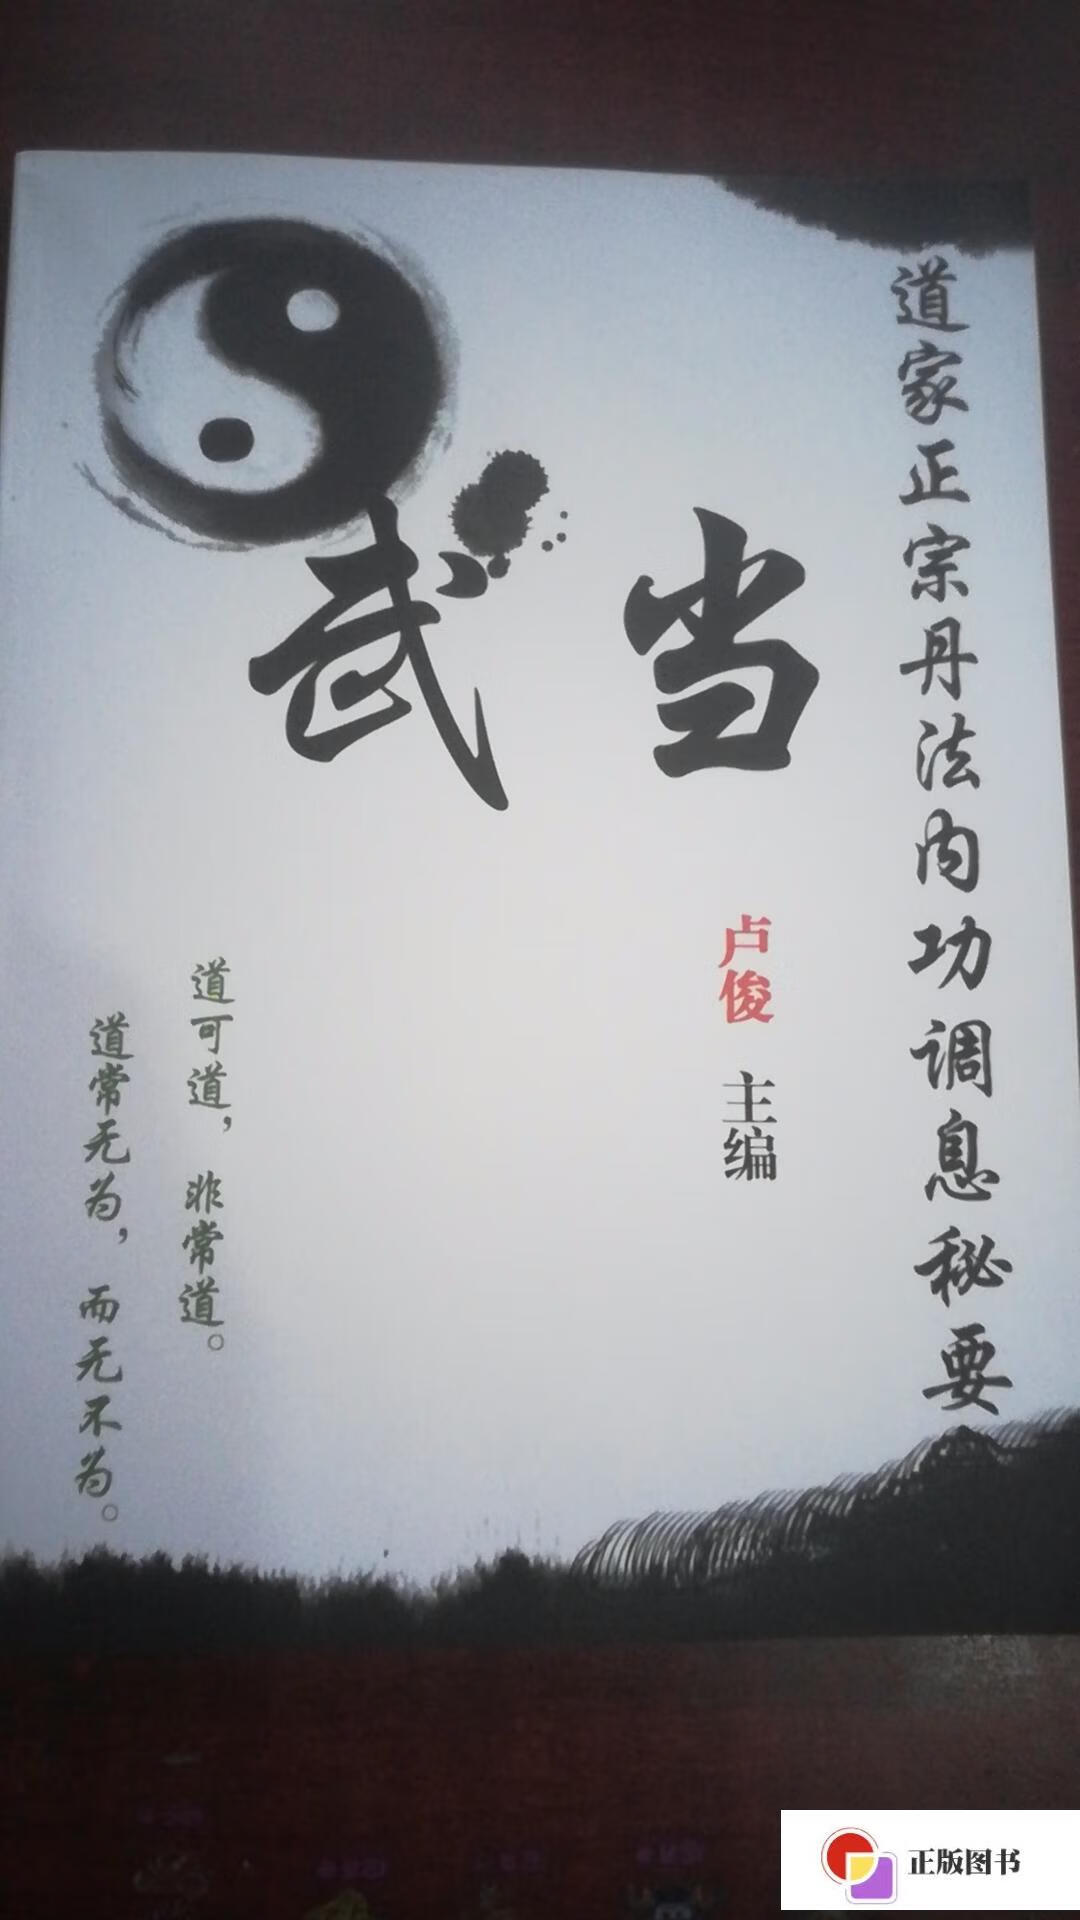 武当
道家正宗丹法内功调息秘要
卢俊 主编
道可道，非常道。
道常无为，而无不为。
正版图书